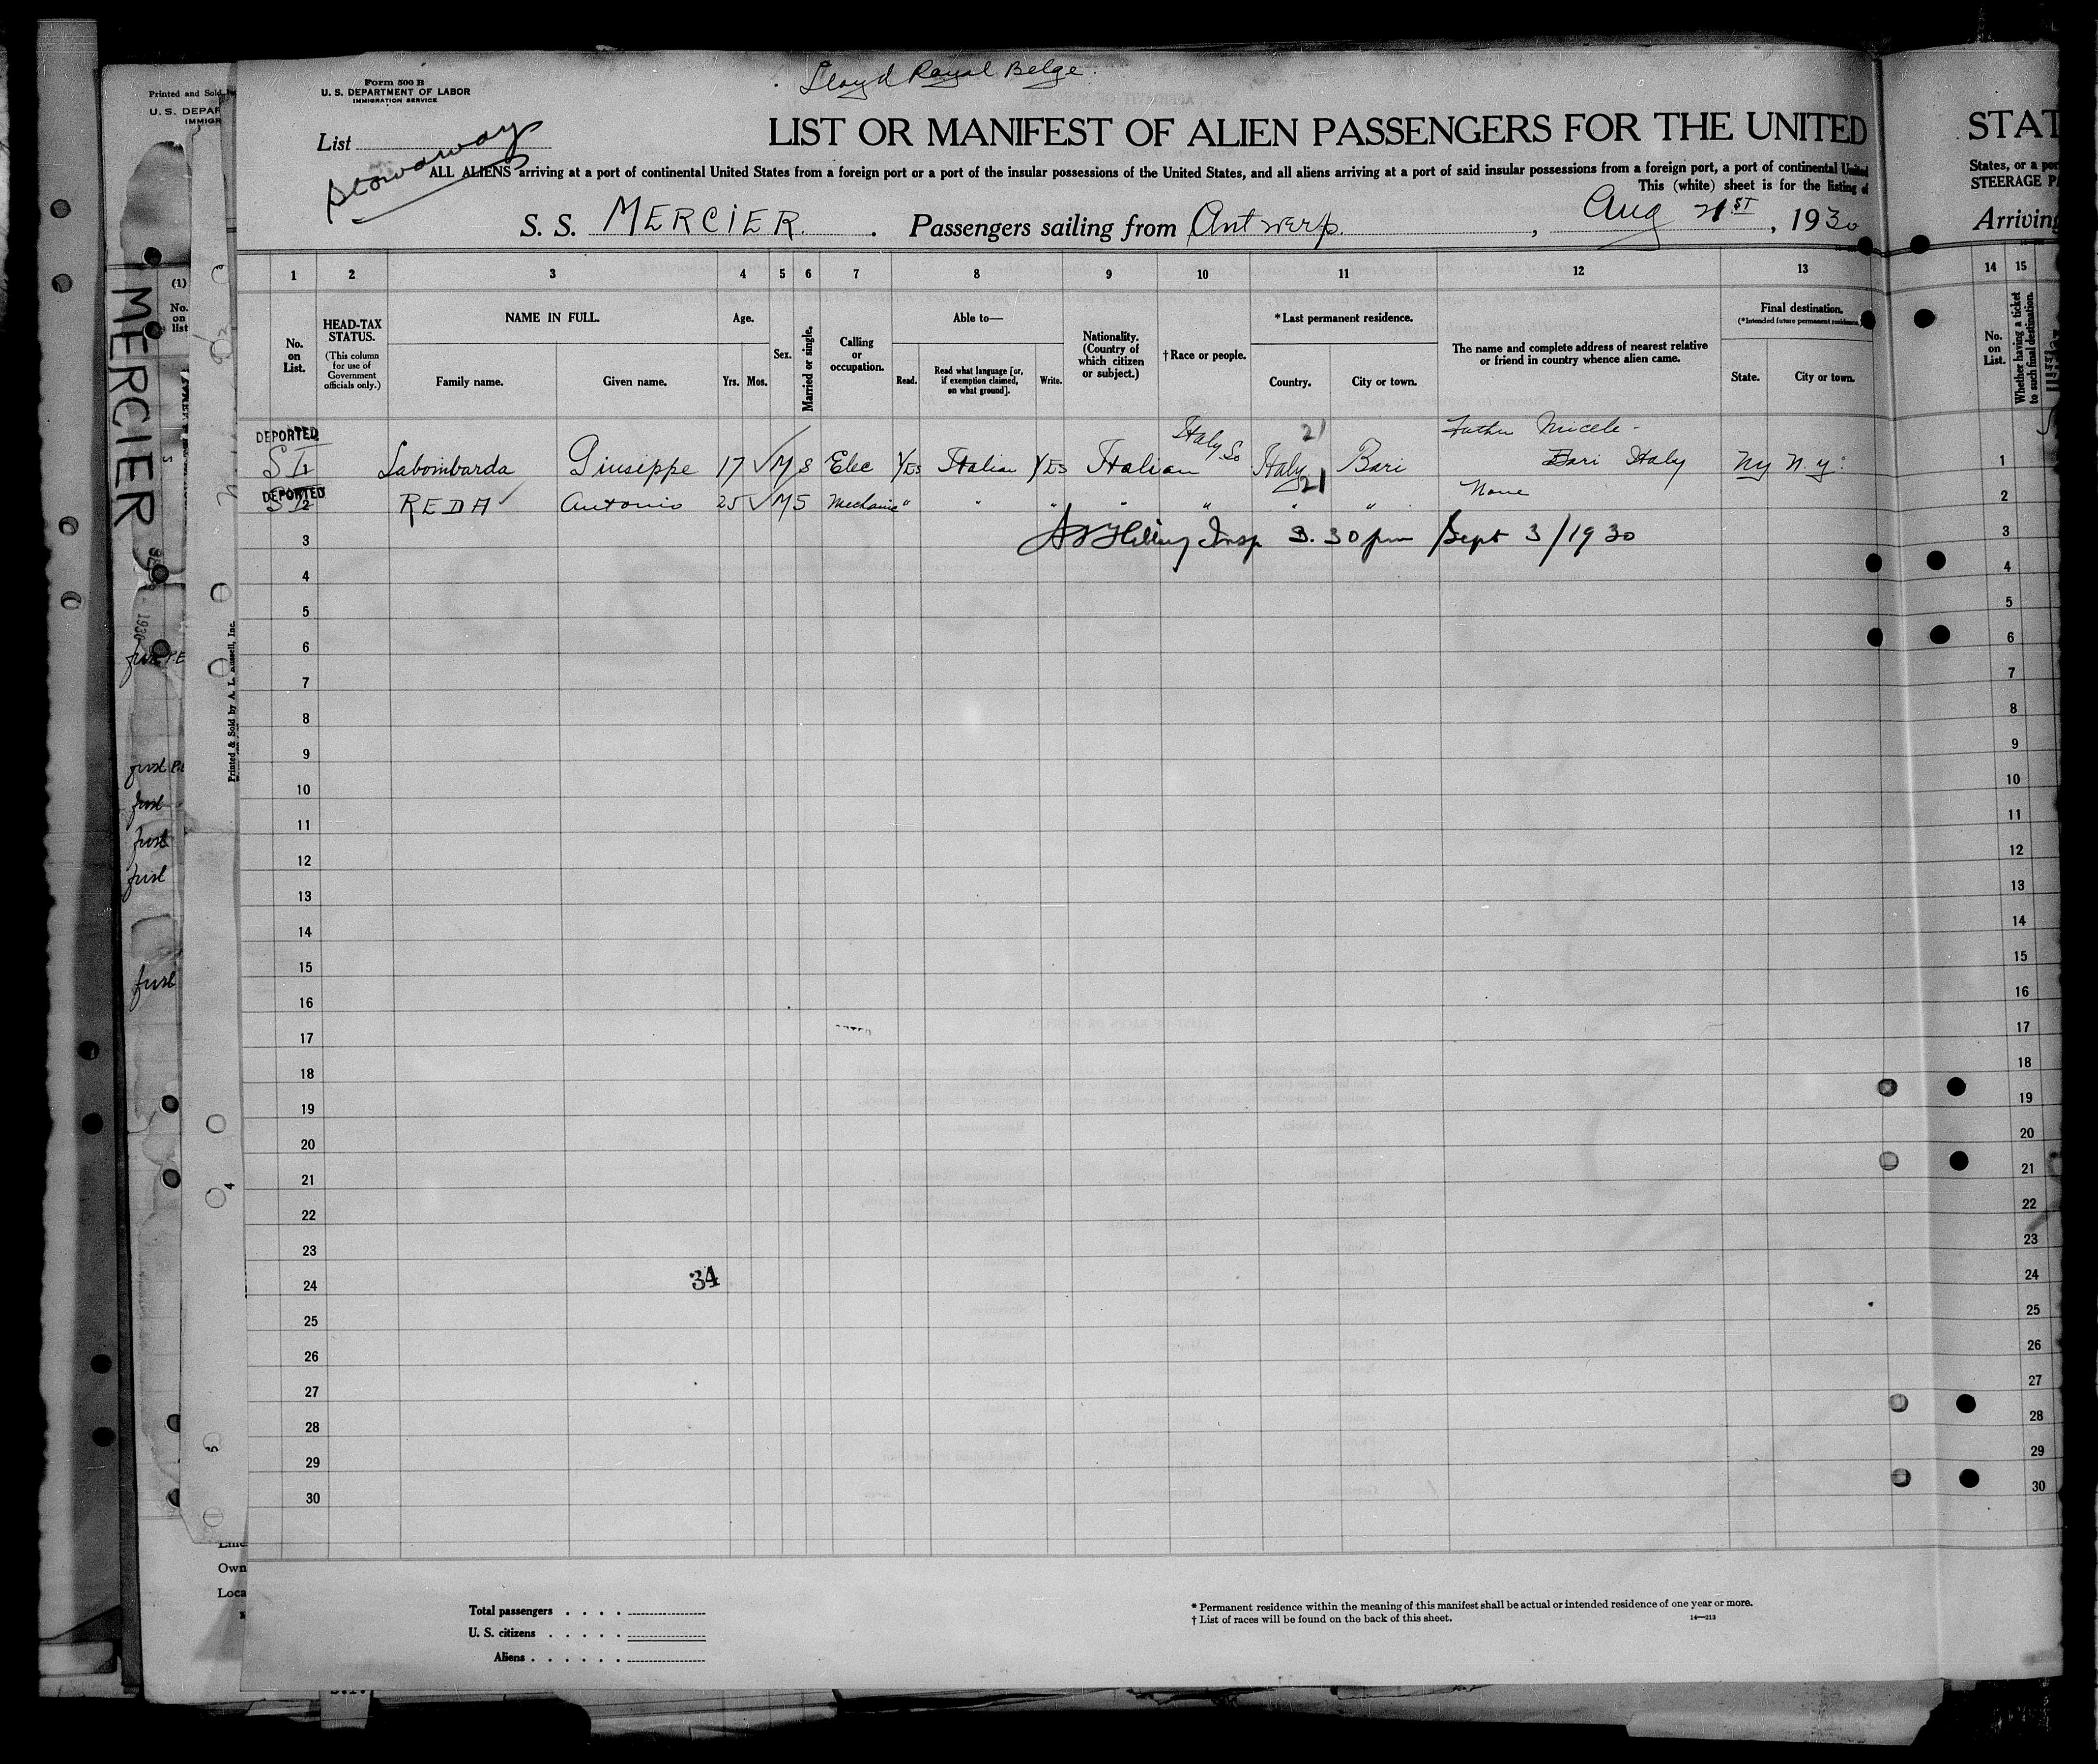 Lloyd Royal Belge
Form 500 B
U. S. DEPARTMENT OF LABOR
IMMIGRATION SERVICE
Printed and Sold
U. S. DEPAR
IMMIGR
List
Stowaway
LIST OR MANIFEST OF ALIEN PASSENGERS FOR THE UNITED
STAT
ALL ALIENS arriving at a port of continental United States from a foreign port or a port of the insular possessions of the United States, and all aliens arriving at a port of said insular possessions from a foreign port, a port of continental United
States, or a por
This (white) sheet is for the listing of
STEERAGE PA
S. S. MERCIER. Passengers sailing from Antwerp. , Aug 21ST , 1930
Arriving
1 2 3 4 5 6 7 8 9 10 11 12 13
14 15
No. on List.
HEAD-TAX STATUS.
(This column for use of Government officials only.)
NAME IN FULL.
Family name.
Given name.
Age.
Yrs. Mos.
Sex.
Married or single.
Calling or occupation.
Able to—
Read.
Read what language [or, if exemption claimed, on what ground].
Write.
Nationality. (Country of which citizen or subject.)
†Race or people.
*Last permanent residence.
Country.
City or town.
The name and complete address of nearest relative or friend in country whence alien came.
Final destination.
(*Intended future permanent residence.)
State.
City or town.
No. on List.
Whether having a ticket to such final destination.
(1)
No. on list
MERCIER
1930
DEPORTED
Italy So 21 Father Micele -
SI 1 Labombarda Giuseppe 17 M S Elec Yes Italian Yes Italian Italy Bari Bari Italy Ny N.y. 1
DEPORTED
21 None
SI 2 REDA Antonio 25 M S Mechanic " " " " " " 2
3 Insp 3.30 pm Sept 3/1930 3
4 4
5 5
6 6
7 7
8 8
9 9
10 10
11 11
12 12
13 13
14 14
15 15
16 16
17 17
18 18
19 19
20 20
21 21
22 22
23 23
34
24 24
25 25
26 26
27 27
28 28
29 29
30 30
Printed & Sold by A. L. Russell, Inc.
4
Own
Loca
Total passengers . . . .
U. S. citizens . . . . .
Aliens . . . . . .
* Permanent residence within the meaning of this manifest shall be actual or intended residence of one year or more.
† List of races will be found on the back of this sheet.
14—213